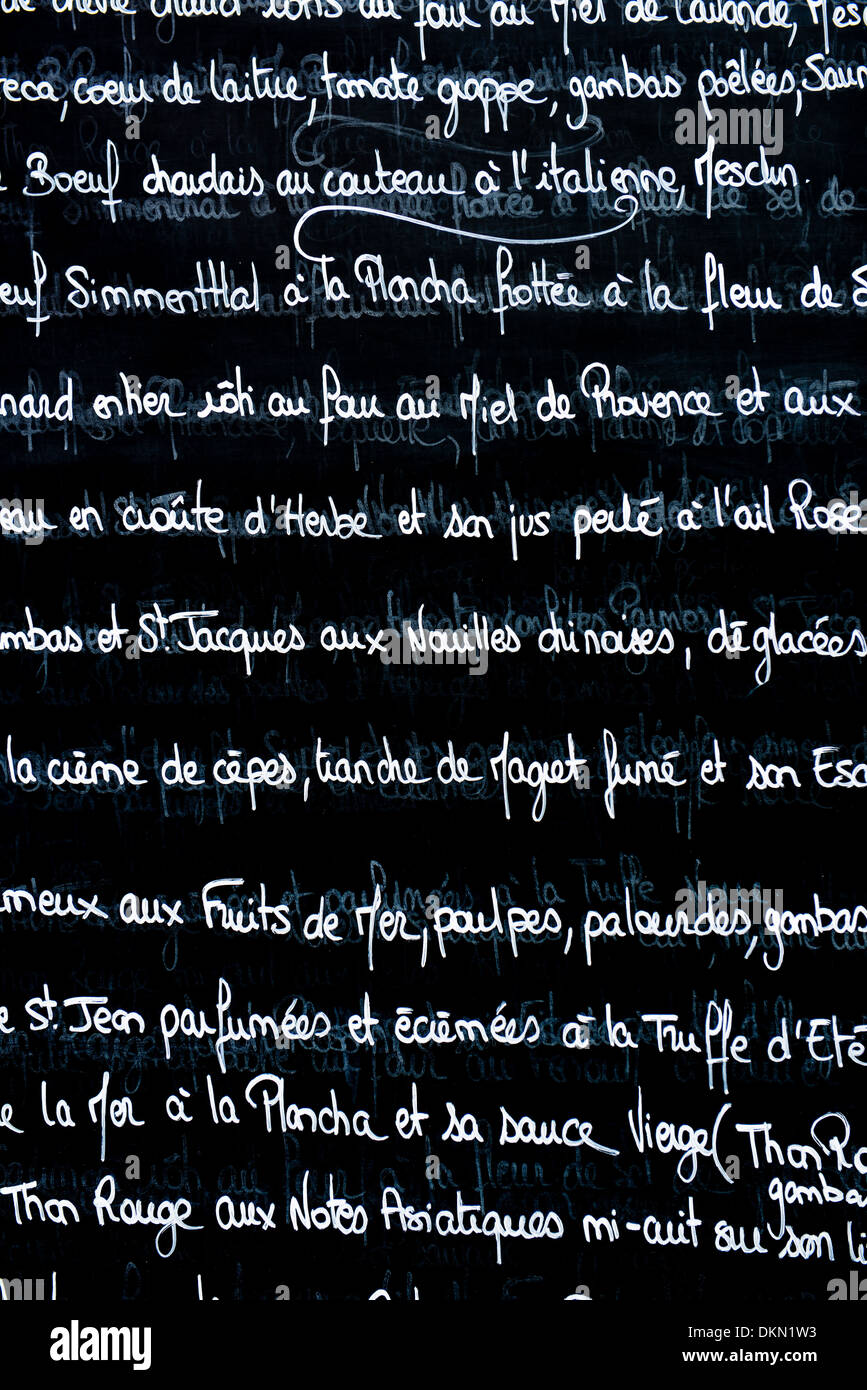 de chèvre chauds rôtis au four au Miel de Lavande, Mes
eca, coeur de laitue, tomate grappe, gambas poêlées, Saum
Boeuf charolais au couteau à l'italienne, Mesclun.
euf Simmenthal à la Plancha frottée à la fleur de S
nard entier rôti au four au Miel de Provence et aux
eau en croûte d'Herbe et son jus perlé à l'ail Rose
mbas et St. Jacques aux Nouilles chinoises, déglacées
la crème de cèpes, tranche de Magret fumé et son Esc
rmieux aux Fruits de Mer, poulpes, palourdes, gambas
e St. Jean parfumées et écrémées à la Truffe d'Eté
e la Mer à la Plancha et sa sauce Vierge (Thon Ro
gamba
Thon Rouge aux Notes Asiatiques mi-cuit sur son li
alamy
DKN1W3
www.alamy.com